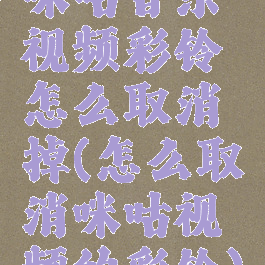 咪咕音乐
视频彩铃
怎么取消
掉(怎么取
消咪咕视
频的彩铃)